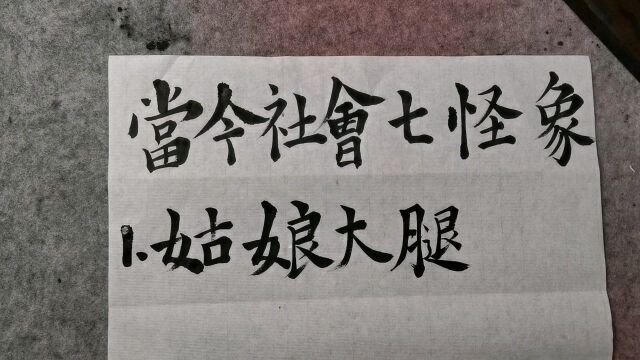 當今社會七怪象
1.姑娘大腿